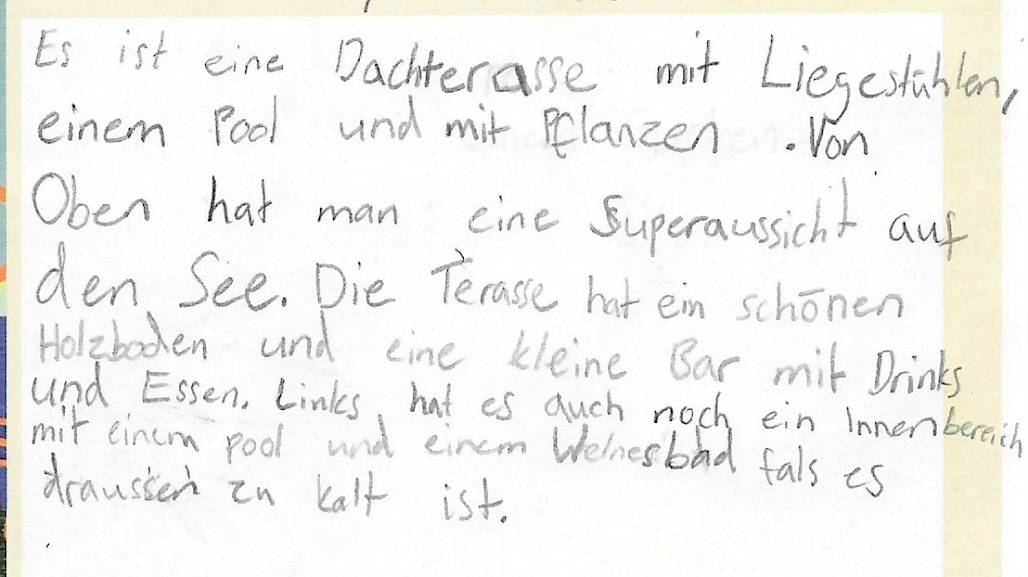 Es ist eine Dachterasse mit Liegestühlen,
einem Pool und mit Pflanzen. Von
Oben hat man eine Superaussicht auf
den See. Die Terasse hat ein schönen
Holzboden und eine kleine Bar mit Drinks
und Essen. Links hat es auch noch ein Innenbereich
mit einem pool und einem Welnesbad fals es
draussen zu kalt ist.